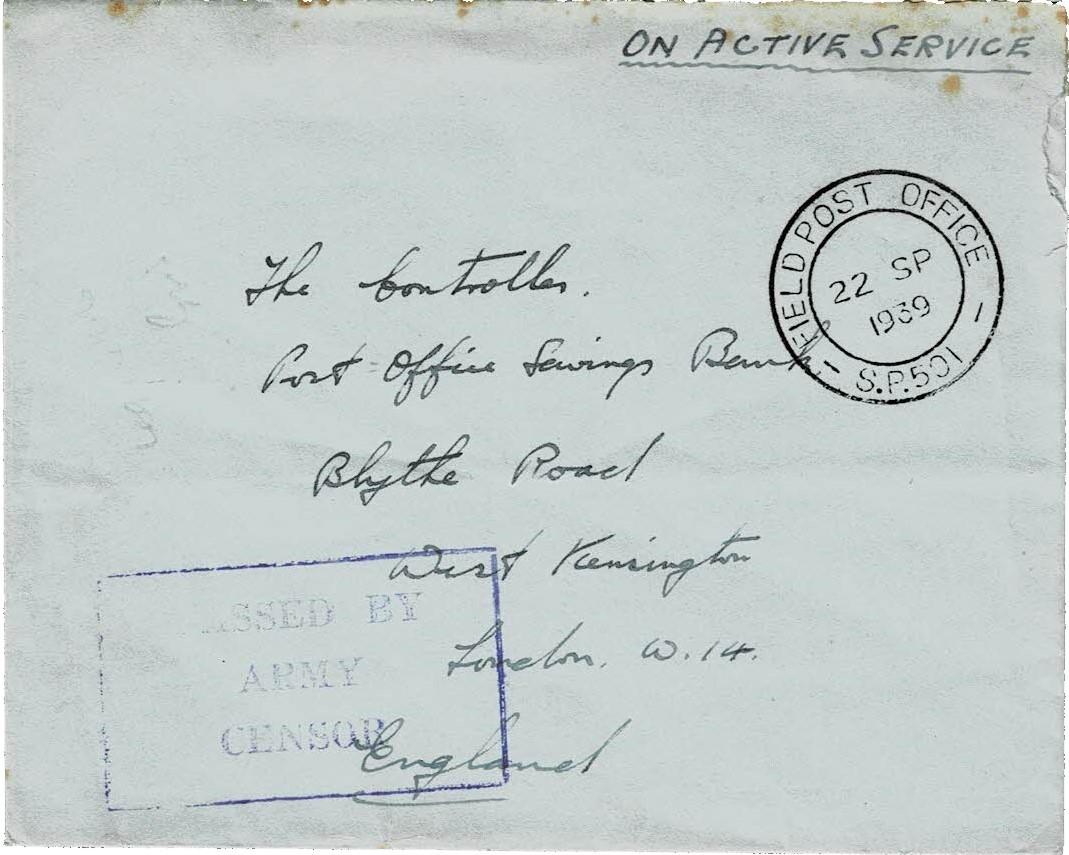 ON ACTIVE SERVICE
FIELD POST OFFICE
22 SP
1939
S.P.501
The Controller.
Post Office Savings Bank
Blythe Road
West Kensington
London. W.14.
England
ASSED BY
ARMY
CENSOR